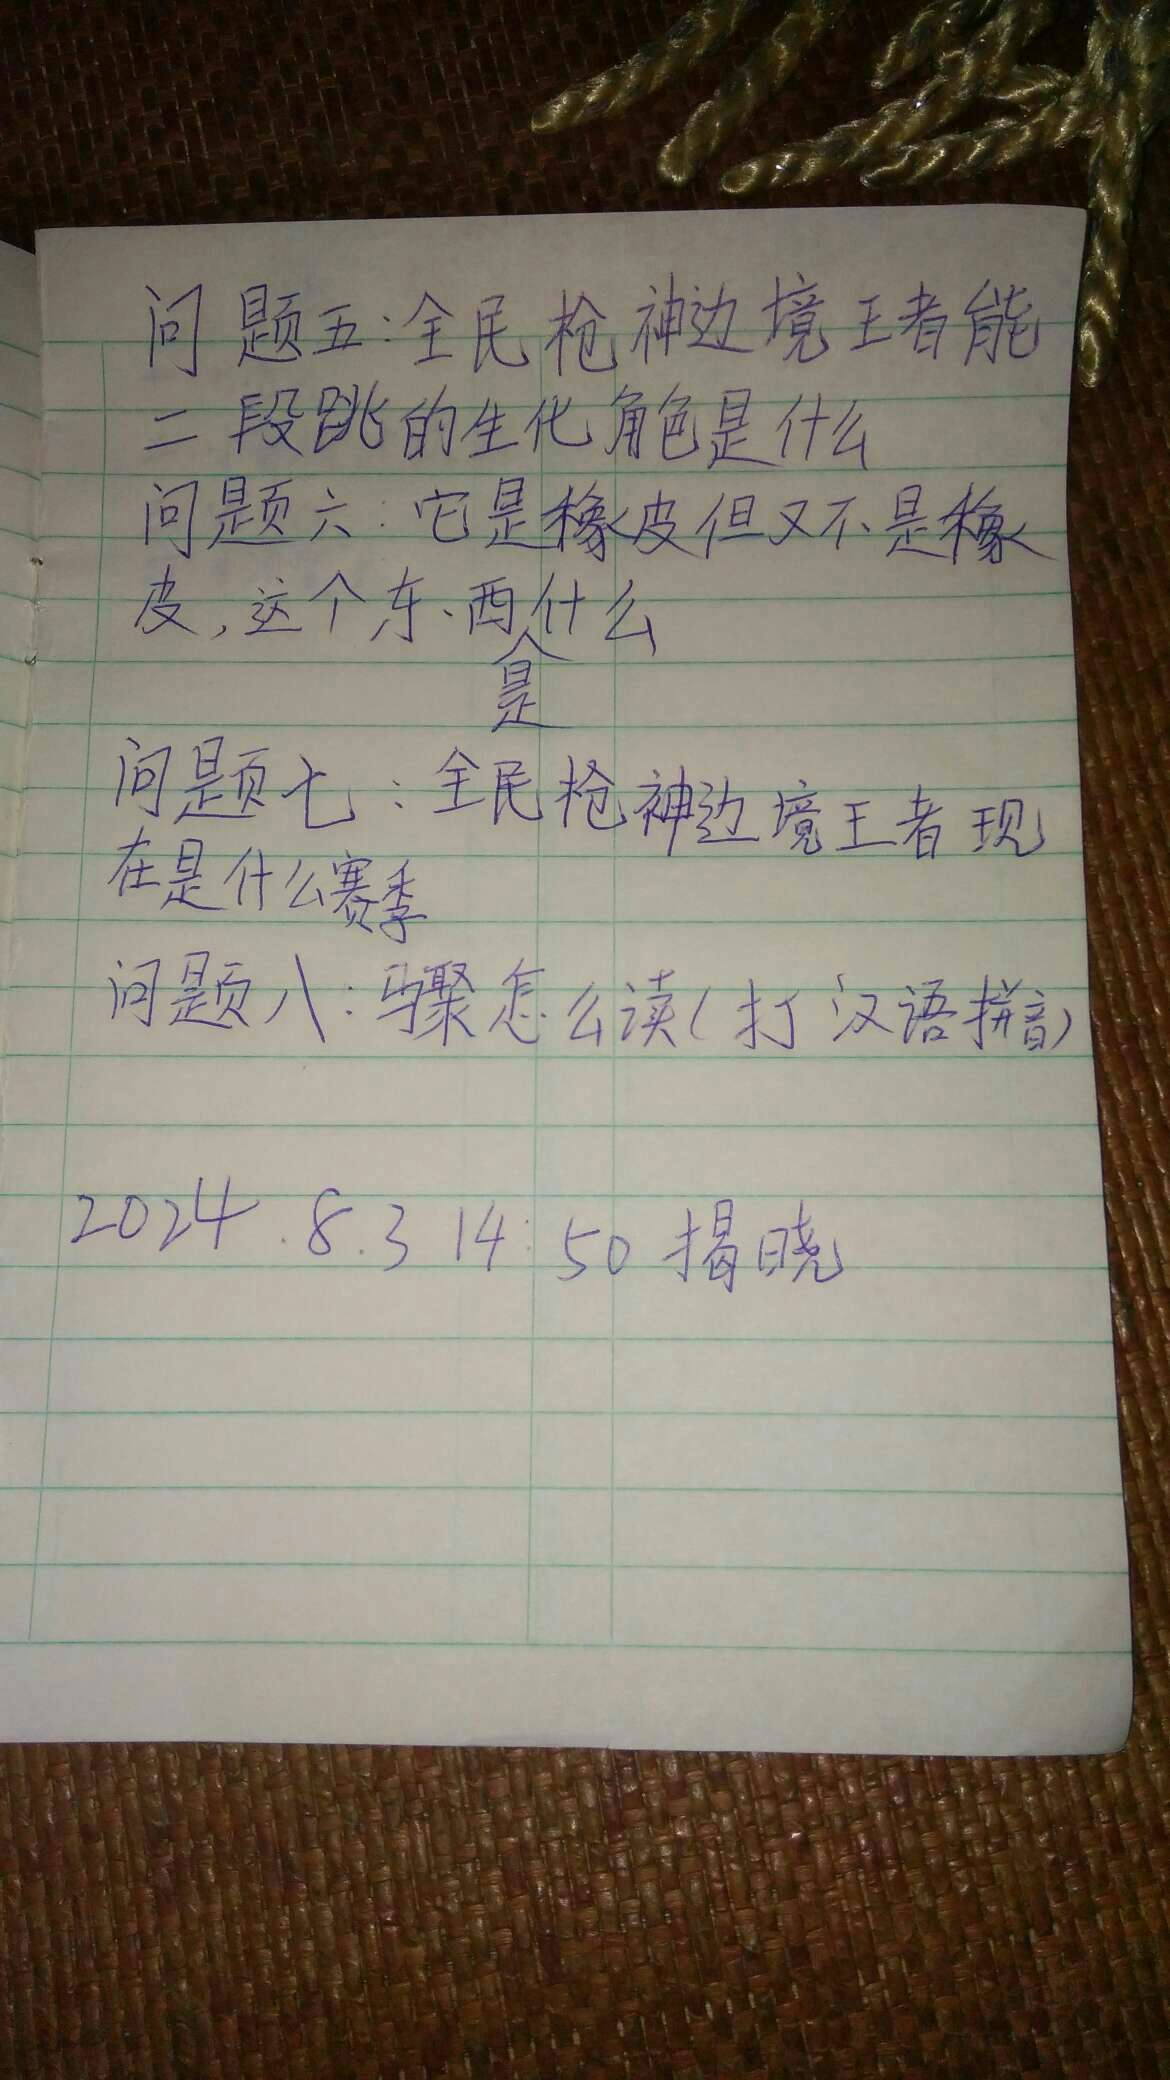 问题五:全民枪神边境王者能
二段跳的生化角色是什么
问题六:它是橡皮但又不是橡
皮,这个东西什么
是
问题七:全民枪神边境王者现
在是什么赛季
问题八:骤怎么读(打汉语拼音)
2024.8.3 14:50揭晓